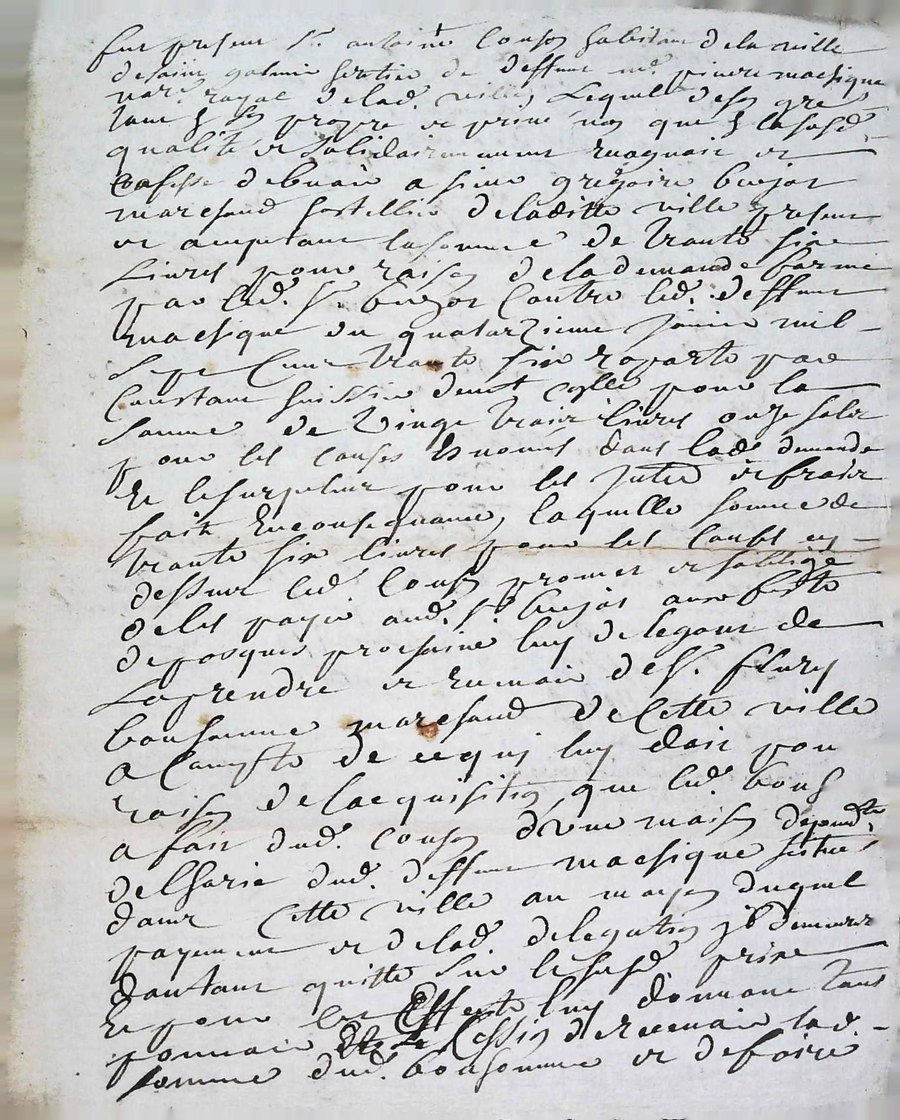 fut present Sr. antoine Couson habitant de la ville
de saint galmie heritier de deffunt me. pierre macsique
nore. royal de lad. ville, Lequel de son gre
tant a son propre et prive nom que a la susd.
qualité et solidairement reconnoit et
confesse debvoir a sieur gregoire bujot
marchand hostellier de laditte ville present
et aceptant la somme de trante six
Livres pour raison de la demande formee
par led. Sr. bujot Contre led. deffunt
macsique du quatorzieme janvie mil
sept Cent trante six raporté par
Constant huissier dont celle pour la
somme de vingt trois livres onze sols
pour les causes enoncés dans lad. demande
Et le surplus pour les interé et frais
fait En consequance, laquelle somme de
trante six livres pour les causes cy
dessus led. Couson promet et soblige
de les payer aud. Sr. bujot aux feste
de pasques prochaine luy delegant de
La prendre et recevoir de Sr. flury
bonhomme marchand de Cette ville
a Compte de ce qui luy doit pour
raison de lacquisition que led. bonh
a fait dud. Couson d'une maison dépendte
de lhoirie dud. deffunt macsique scitue
dans Cette ville au moyen duquel
payement et de lad. delegation jl demeurer
dautant quitte sur le susd. prix
Et pour Cet Effect luy donnant tout
pouvoir de Cession de recevoir lad.
somme dud. bonhomme et de faire